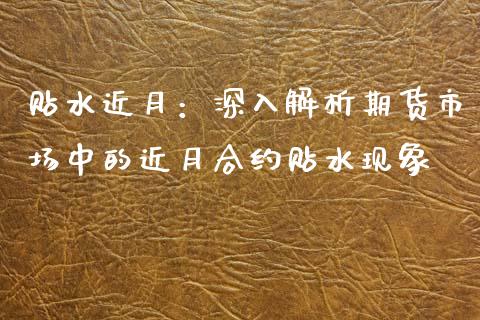 贴水近月：深入解析期货市
场中的近月合约贴水现象